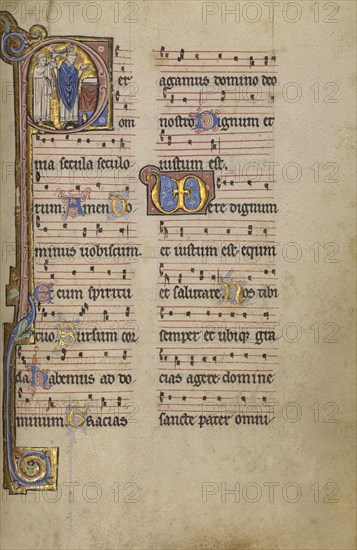 Per
om
nia secula seculo
rum Amen Do
minus uobiscum
Et cum spiritu
tuo. Sursum cor
da habemus ad do
minum Gracias
agamus domino deo
nostro Dignum et
iustum est.
Uere dignum
et iustum est equm
et salutare. Nos tibi
semper et ubiq gra
cias agere domine
sancte pater omni-